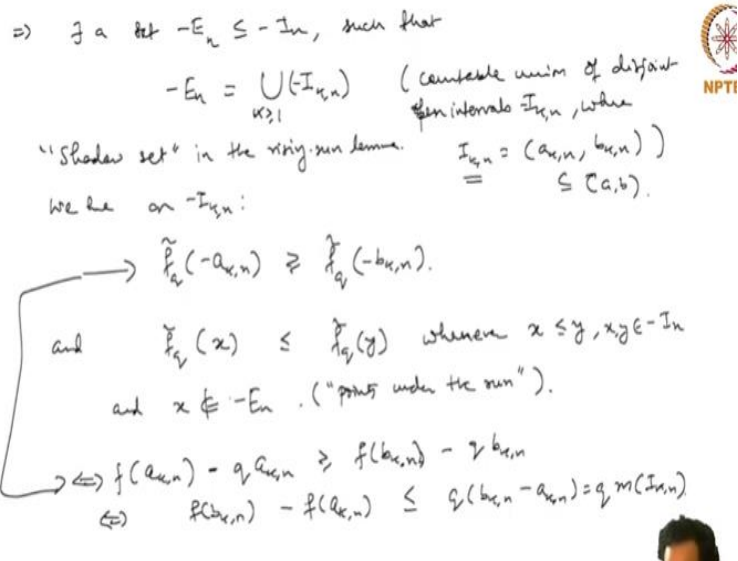 => ∃ a set -E_n ⊆ -I_n, such that
-E_n = ⋃_{k≥1} (-I_{k,n}) (countable union of disjoint
open intervals -I_{k,n}, where
"Shadow set" in the rising-sun lemma. I_{k,n} = (a_{k,n}, b_{k,n}))
⊆ (a,b).
We have on -I_{k,n}:
f̃_q(-a_{k,n}) ≥ f̃_q(-b_{k,n}).
and f̃_q(x) ≤ f̃_q(y) whenever x ≤ y, x,y ∈ -I_n
and x ∉ -E_n. ("points under the sun").
⟺ f(a_{k,n}) - q a_{k,n} ≥ f(b_{k,n}) - q b_{k,n}
⟺ f(b_{k,n}) - f(a_{k,n}) ≤ q(b_{k,n} - a_{k,n}) = q m(I_{k,n})
NPTE